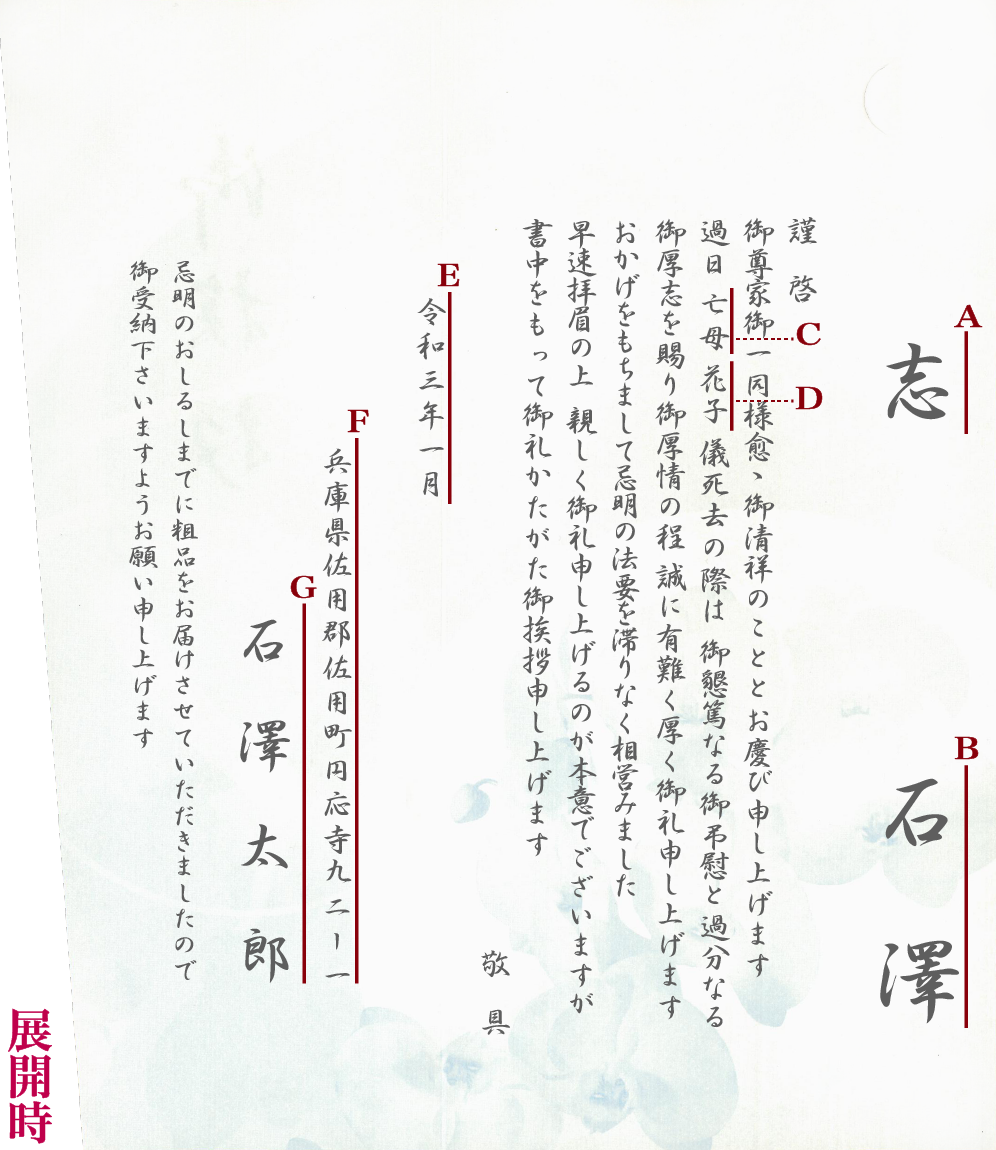 A
志
B
石澤
謹啓
御尊家御一同様愈ゝ御清祥のこととお慶び申し上げます
C
D
過日 亡母 花子 儀死去の際は 御懇篤なる御弔慰と過分なる
御厚志を賜り御厚情の程 誠に有難く厚く御礼申し上げます
おかげをもちまして忌明の法要を滞りなく相営みました
早速拝眉の上 親しく御礼申し上げるのが本意でございますが
書中をもって御礼かたがた御挨拶申し上げます
敬具
E
令和三年一月
F
兵庫県佐用郡佐用町円応寺九二ー一
G
石澤太郎
忌明のおしるしまでに粗品をお届けさせていただきましたので
御受納下さいますようお願い申し上げます
展開時